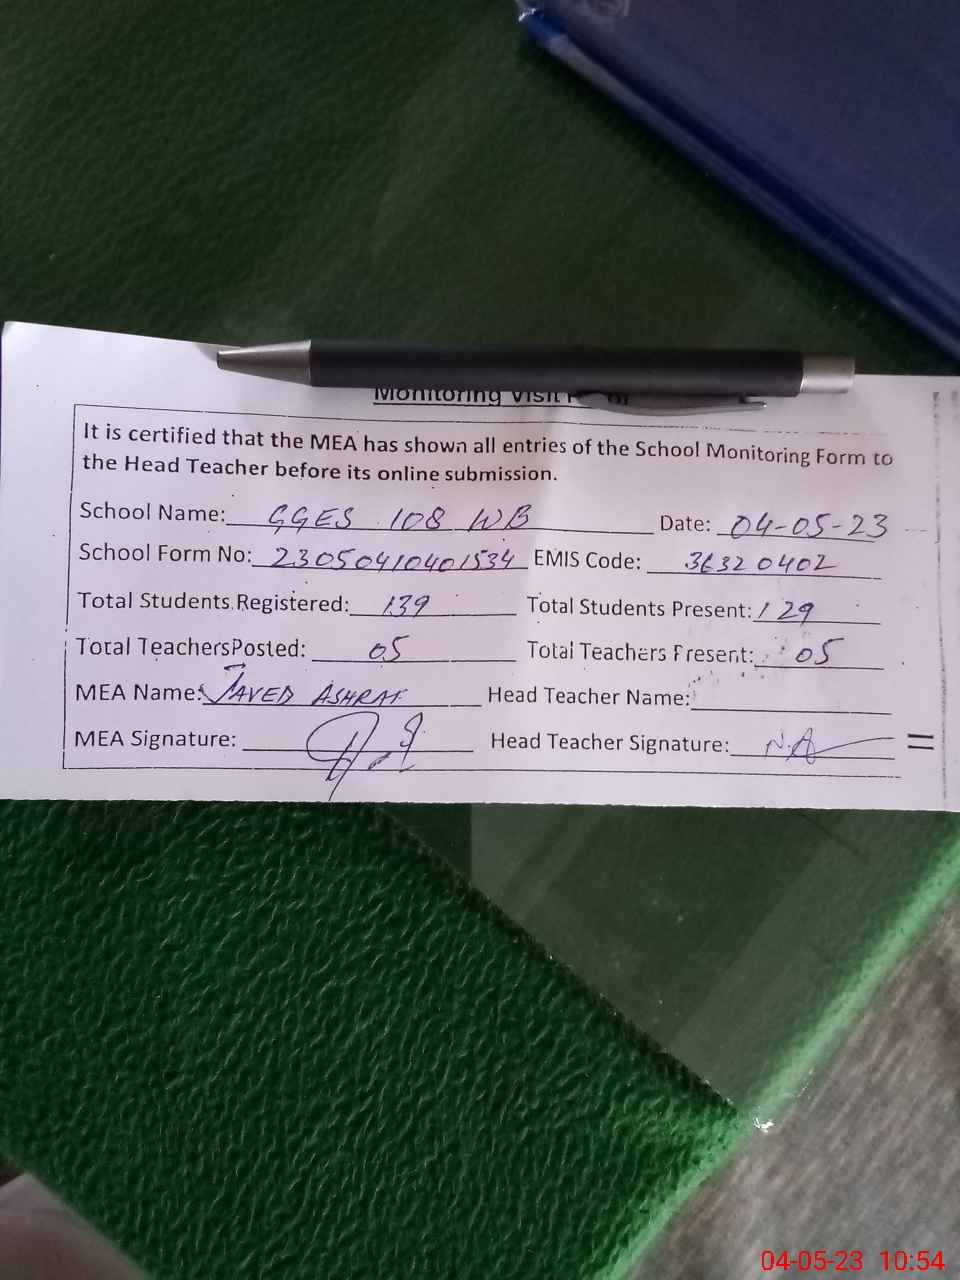 Monitoring Visit
It is certified that the MEA has shown all entries of the School Monitoring Form to
the Head Teacher before its online submission.
School Name: GGES 108 WB Date: 04-05-23
School Form No: 23050410401534 EMIS Code: 36320402
Total Students Registered: 139 Total Students Present: 129
Total TeachersPosted: 05 Total Teachers Present: 05
MEA Name: JAVED ASHRAF Head Teacher Name:
MEA Signature: Head Teacher Signature: N.A
04-05-23 10:54